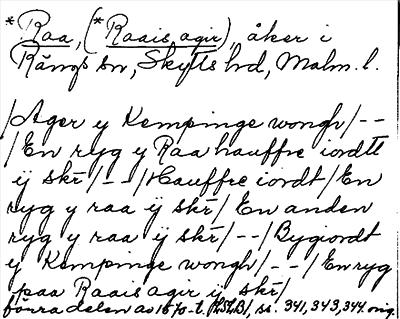 *Raa, (*Raais agir), åker i
Rängs sn, Skytts hd, Malm. l.
/Ager y Kempinge wongh/--
/En ryg y Raa hauffre iordtt
ij skr/--/Hauffre iordt/En
ryg y raa ij skr/En anden
ryg y raa ij skr/--/Bygiordt
y Kempinge wongh/--/En ryg
paa Raais agir ij skr/
förra delen av 1570-t. ss. 341, 343, 344. orig.